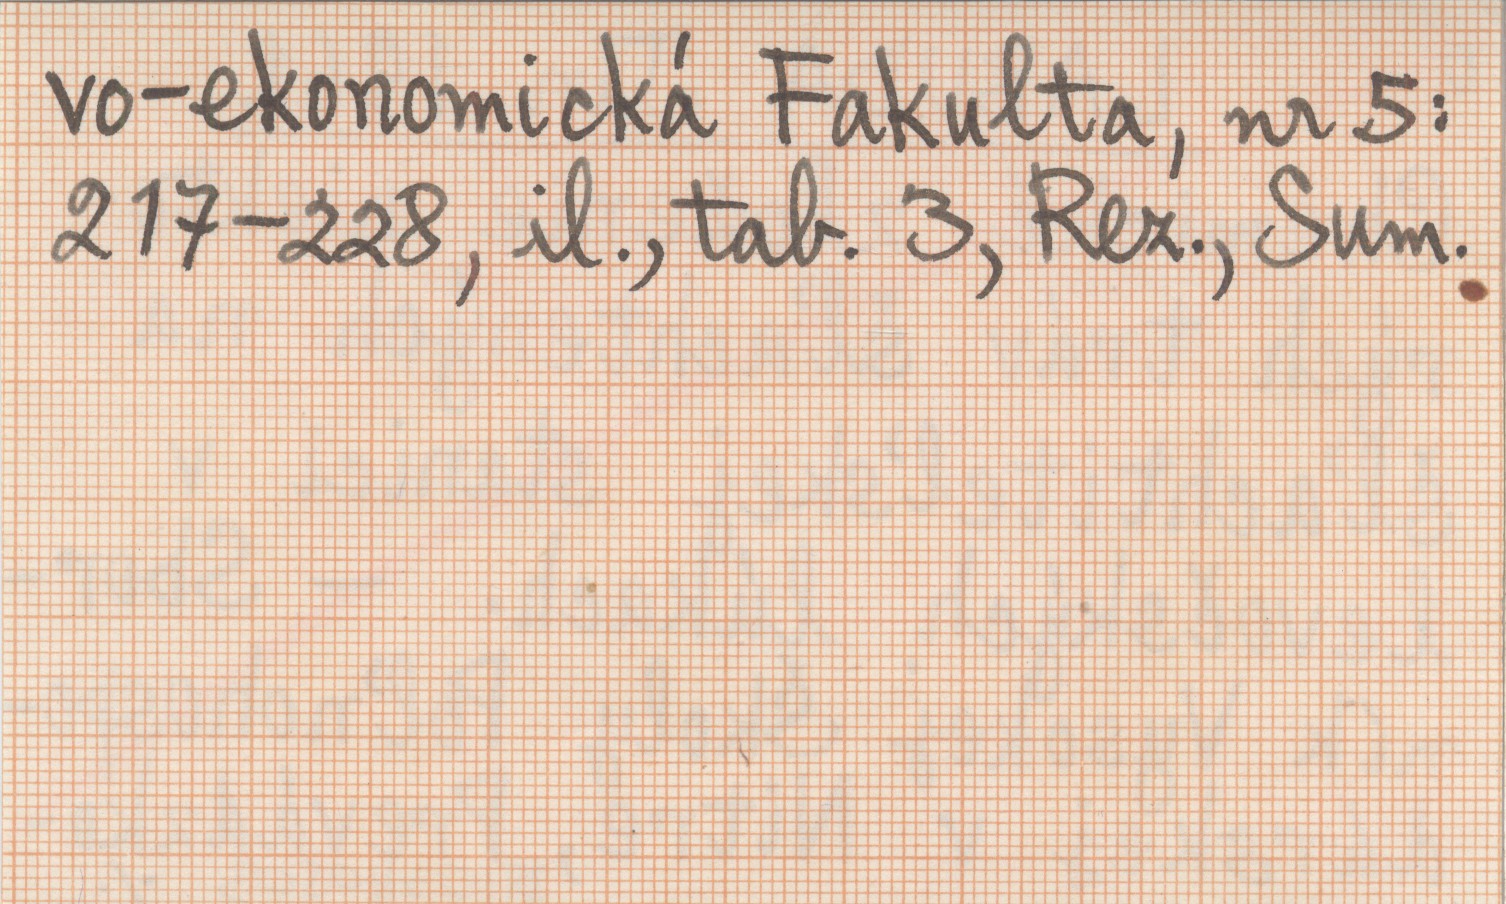 vo-ekonomická Fakulta, nr 5:
217-228, il., tab. 3, Rez., Sum.